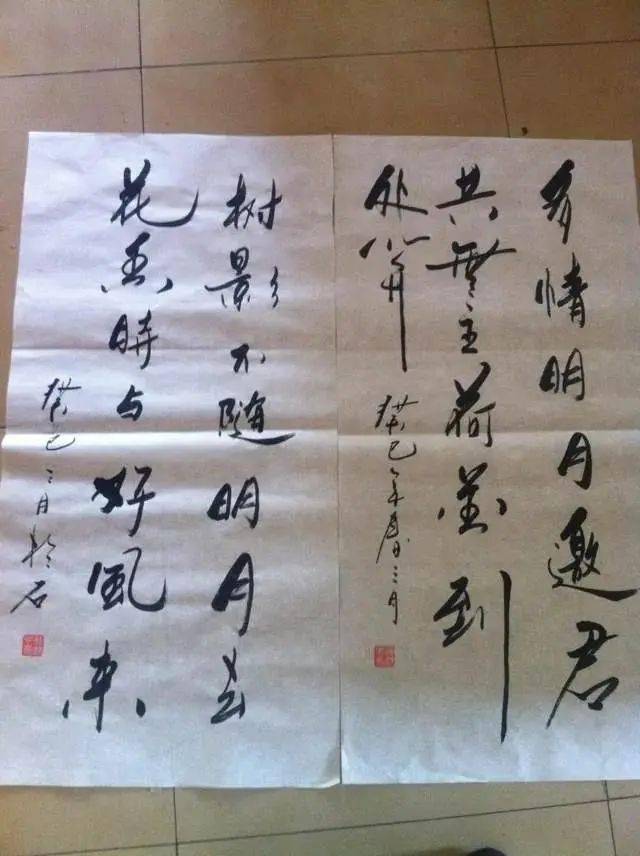 多情明月邀君
共無主荷花到
处开
癸巳年春三月
树影不随明月去
花香時与好風来
癸巳三月石